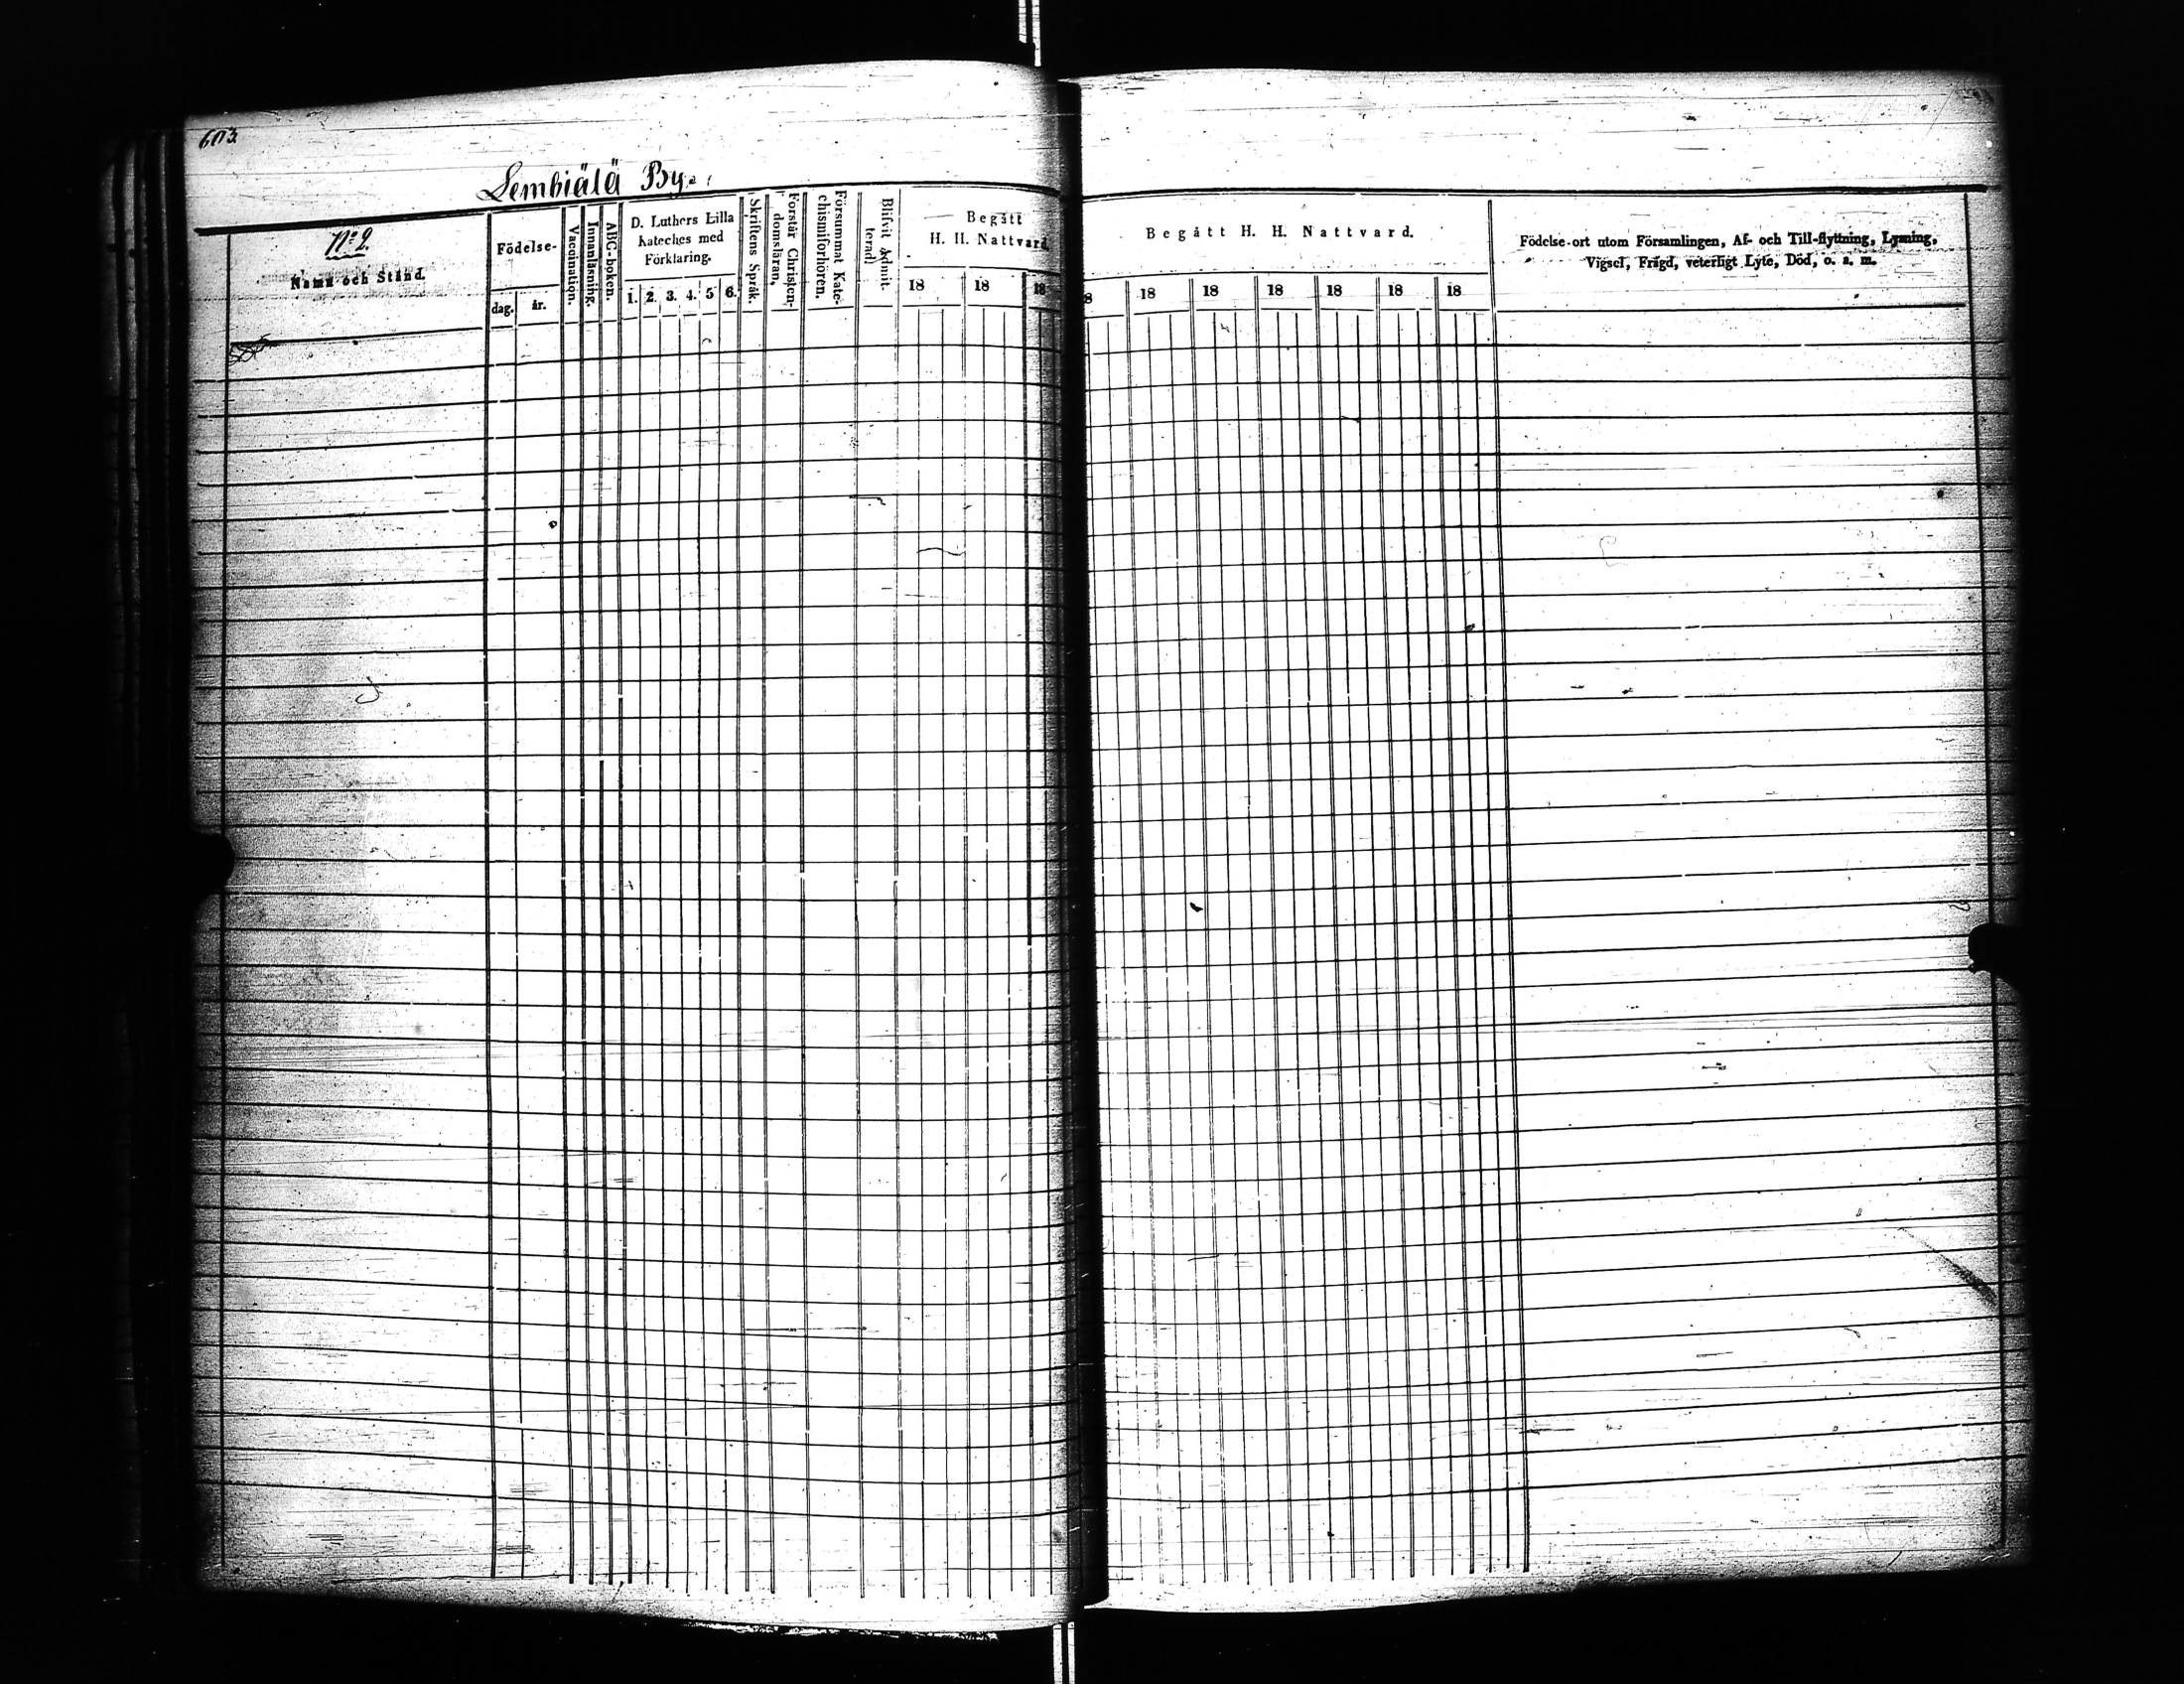 603
Lembiälä By.
N:o 2.
Namn och Stånd.
Födelse-
dag.
år.
Vaccination.
Innanläsning.
ABC-boken.
D. Luthers Lilla
Kateches med
Förklaring.
1. 2. 3. 4. 5 6.
Skriftens Språk.
Förstår Christen-
domsläran,
Försummat Kate-
chismiförhören.
Blifvit admit-
terad
Begått
H. H. Nattvard.
18 18 18
Begått H. H. Nattvard.
8 18 18 18 18 18 18
Födelse-ort utom Församlingen, Af- och Till-flyttning, Lysning,
Vigsel, Frägd, veterligt Lyte, Död, o. s. m.